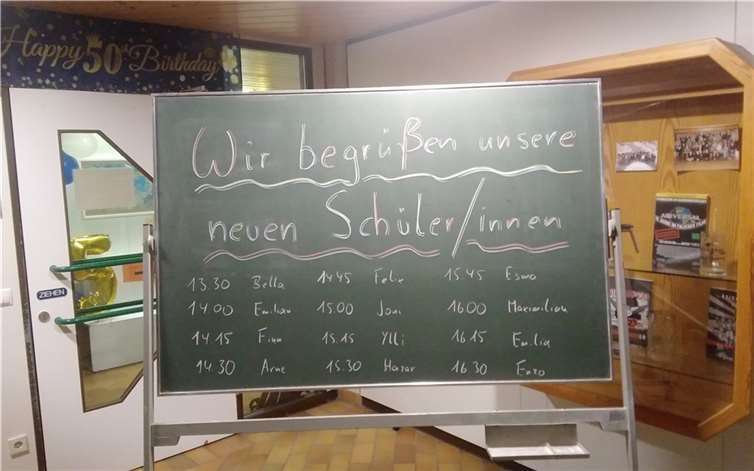 Happy 50th Birthday
Wir begrüßen unsere
neuen Schüler/innen
13.30 Bella 14.45 Felix 15.45 Esmo
14.00 Emilian 15.00 Joni 16.00 Maximilian
14.15 Finn 15.15 Ylli 16.15 Emilia
14.30 Arne 15.30 16.30 Enzo
ZIEHEN